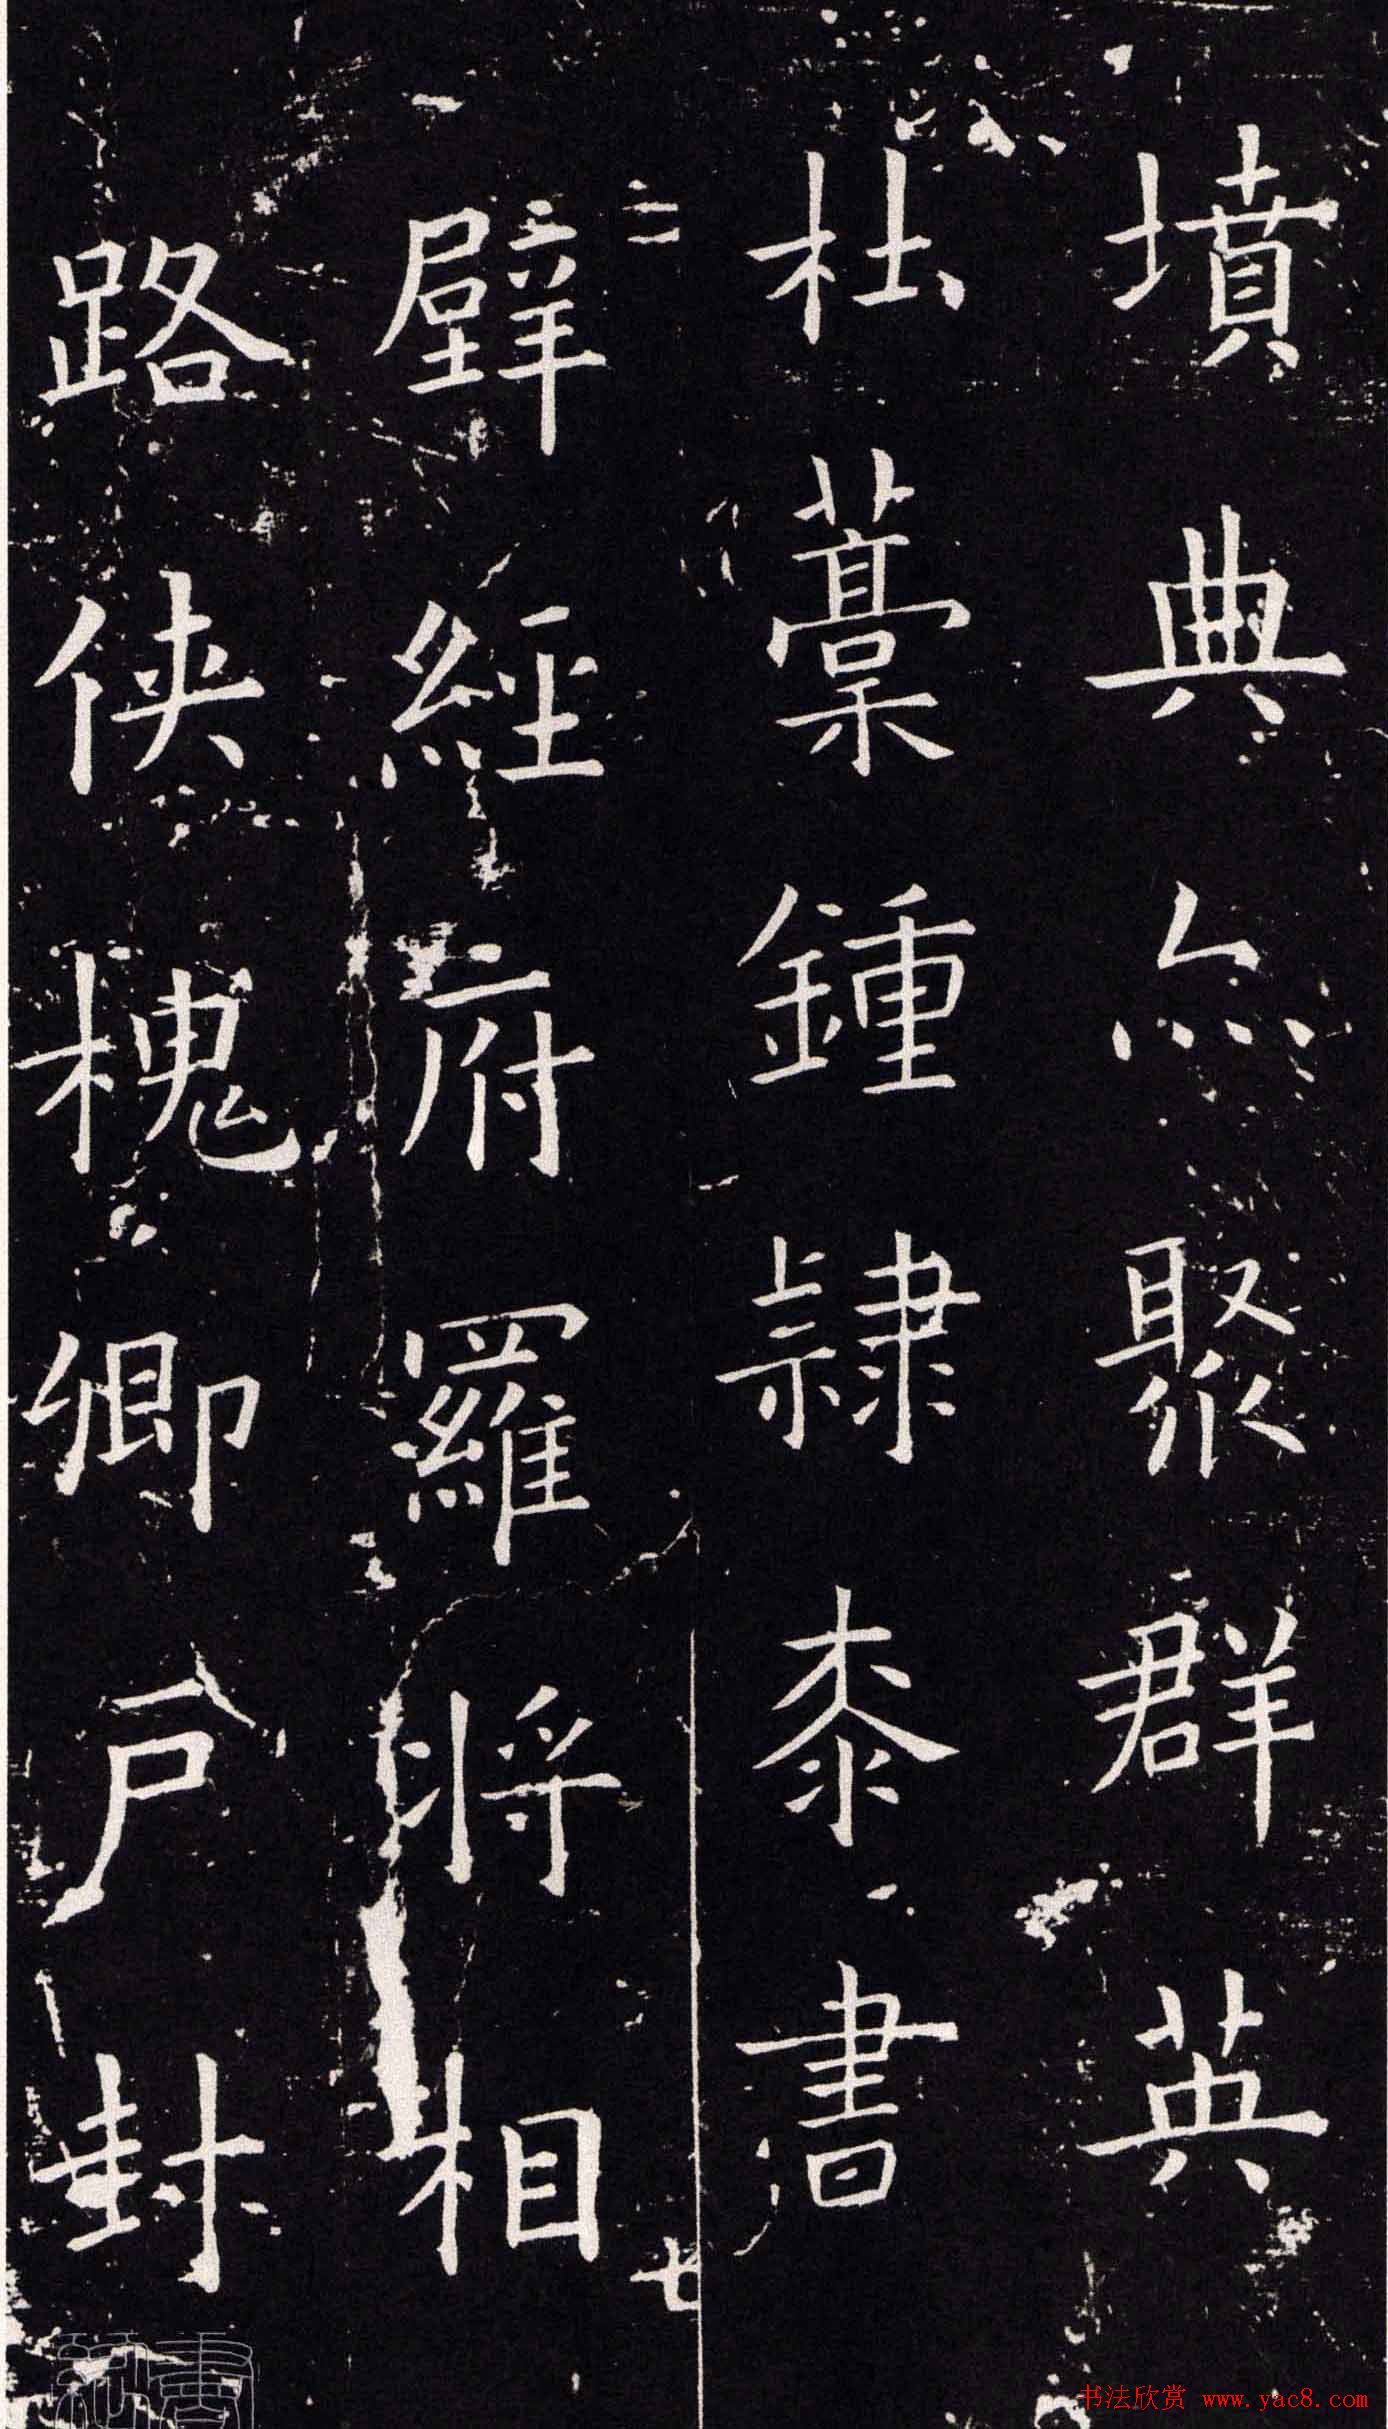 墳典亦聚群英
杜藁鍾隸桼書
壁經府羅將相
路俠槐卿戶封
书法欣赏 www.yac8.com